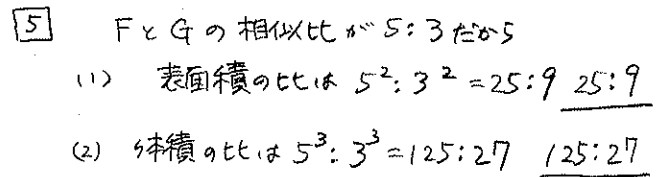 5 FとGの相似比が5:3だから
(1) 表面積の比は 5²:3²=25:9 25:9
(2) 体積の比は 5³:3³=125:27 125:27